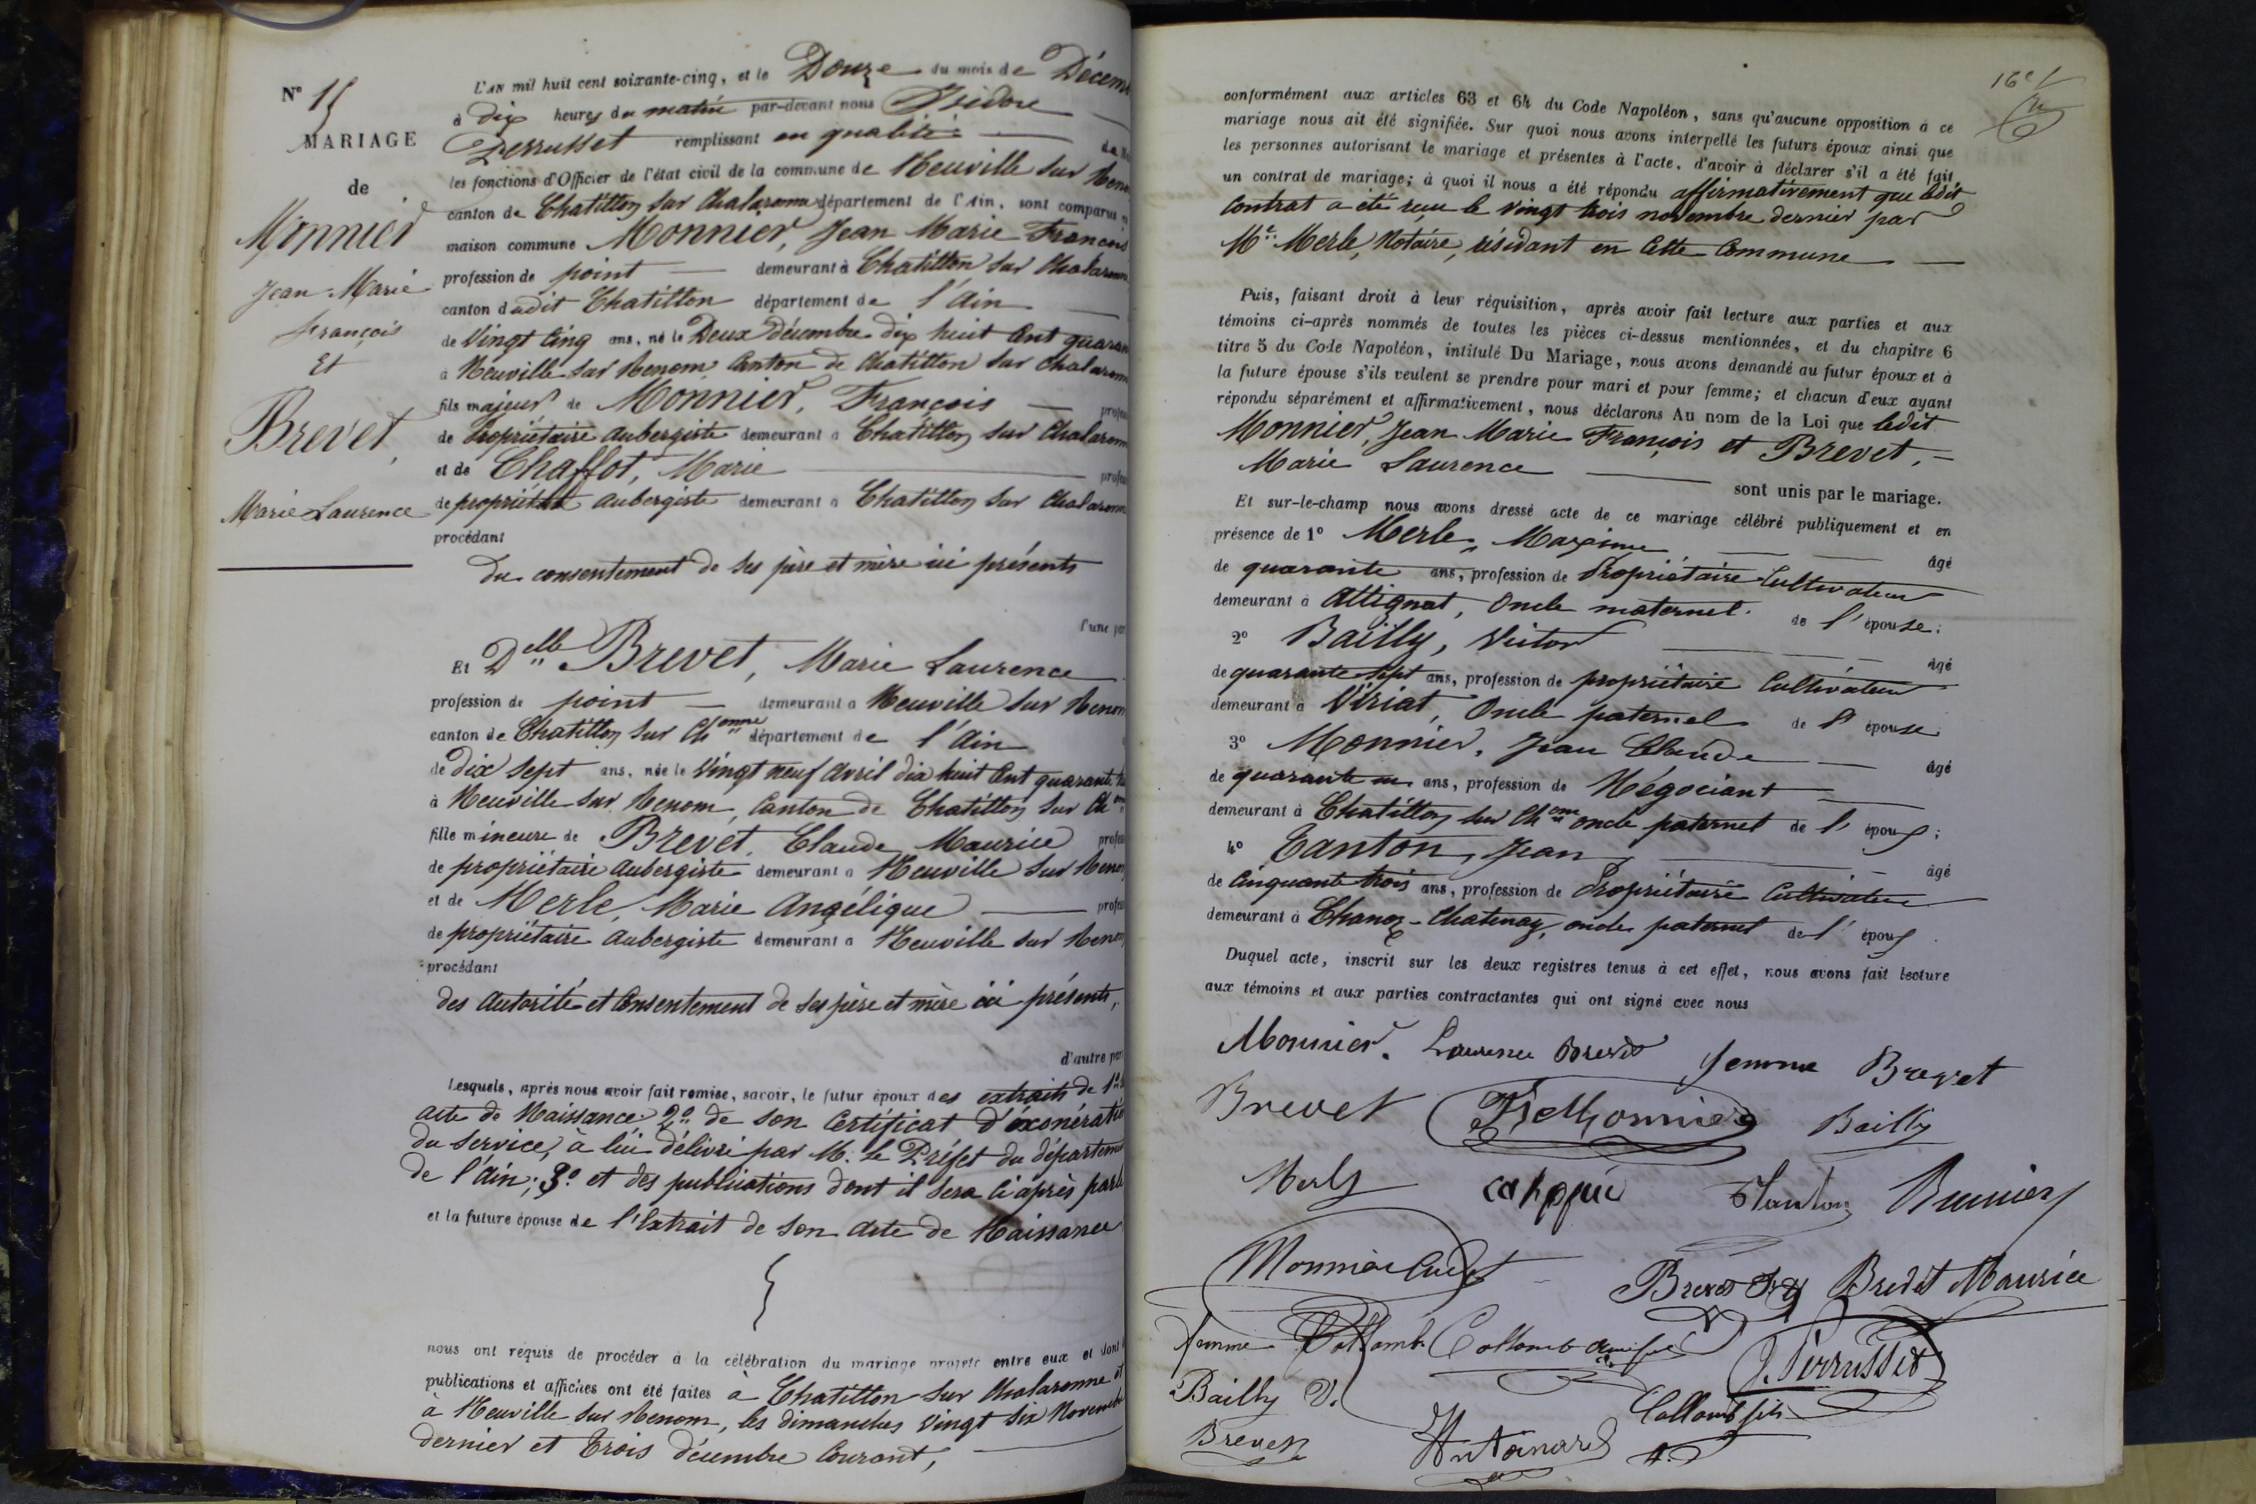 N° 15
MARIAGE
de
Monnier
Jean-Marie
François
Et
Brevet,
Marie Laurence
L'AN mil huit cent soixante-cinq, et le Douze du mois de Décem
à dix heures du matin par-devant nous Isidore
Perrusset remplissant en qualité
les fonctions d'Officier de l'état civil de la commune de Neuville sur Renom
canton de Chatillon sur Chalaronne département de l'Ain, sont comparus en
maison commune Monnier, Jean Marie François
profession de point demeurant à Chatillon sur Chalaronne
canton dudit Chatillon département de l'Ain
de Vingt Cinq ans, né le Deux décembre dix huit Cent quaran
à Neuville sur Renom Canton de Chatillon sur Chalaronne
fils majeur de Monnier, François profes
de Propriétaire aubergiste demeurant à Chatillon sur Chalaronne
et de Chaffot, Marie profes
de propriétaire aubergiste demeurant à Chatillon sur Chalaronne
procédant
du consentement de ses père et mère ici présents
d'une par
Et Delle Brevet, Marie Laurence
profession de point demeurant à Neuville sur Renom
canton de Chatillon sur Chonne département de l'Ain
de dix sept ans, née le Vingt neuf avril dix huit Cent quarante
à Neuville sur Renom, Canton de Chatillon sur Ch
fille mineure de Brevet, Claude Maurice profes
de propriétaire aubergiste demeurant à Neuville sur Renom
et de Merle, Marie Angélique profes
de propriétaire aubergiste demeurant à Neuville sur Renom
procédant
des autorité et Consentement de ses père et mère ici présents,
d'autre par
Lesquels, après nous avoir fait remise, savoir, le futur époux des extraits de 1°
acte de Naissance; 2° de son Certificat d'éxonératio
du service, à lui délivré par M. le Préfet du départeme
de l'Ain; 3° et des publications dont il sera ci après parlé
et la future épouse de l'Extrait de son acte de Naissance
nous ont requis de procéder à la célébration du mariage projeté entre eux et dont
publications et affiches ont été faites à Chatillon sur Chalaronne et
à Neuville sur Renom, les dimanches Vingt Six Novembre
dernier et Trois décembre Courant,
conformément aux articles 63 et 64 du Code Napoléon, sans qu'aucune opposition à ce
mariage nous ait été signifiée. Sur quoi nous avons interpellé les futurs époux ainsi que
les personnes autorisant le mariage et présentes à l'acte, d'avoir à déclarer s'il a été fait
un contrat de mariage; à quoi il nous a été répondu affirmativement que ledit
Contrat a été reçu le Vingt trois novembre dernier par
Me Merle, Notaire, résidant en Cette Commune
Puis, faisant droit à leur réquisition, après avoir fait lecture aux parties et aux
témoins ci-après nommés de toutes les pièces ci-dessus mentionnées, et du chapitre 6
titre 5 du Code Napoléon, intitulé Du Mariage, nous avons demandé au futur époux et à
la future épouse s'ils veulent se prendre pour mari et pour femme; et chacun d'eux ayant
répondu séparément et affirmativement, nous déclarons Au nom de la Loi que ledit
Monnier, Jean Marie François et Brevet,
Marie Laurence
sont unis par le mariage.
Et sur-le-champ nous avons dressé acte de ce mariage célébré publiquement et en
présence de 1° Merle, Maxime âgé
de quarante ans, profession de Propriétaire Cultivateur
demeurant à Attignat, Oncle maternel. de l'épouse;
2° Bailly, Victor âgé
de quarante sept ans, profession de propriétaire Cultivateur
demeurant à Viriat, Oncle paternel de l'épouse
3° Monnier, Jean Claude âgé
de quarante un ans, profession de Négociant
demeurant à Chatillon sur Chonne oncle paternel de l'époux;
4° Tanton, Jean âgé
de Cinquante trois ans, profession de Propriétaire Cultivateur
demeurant à Chanoz-Chatenay, oncle paternel de l'époux
Duquel acte, inscrit sur les deux registres tenus à cet effet, nous avons fait lecture
aux témoins et aux parties contractantes qui ont signé avec nous
Monnier. Laurence Brevet femme Brevet
Brevet Monnier Bailly
Merle Tanton
Monnier Brevet Brevet Maurice
femme Collomb Collomb J. Perrusset
Bailly V. Collomb fils
Brevet